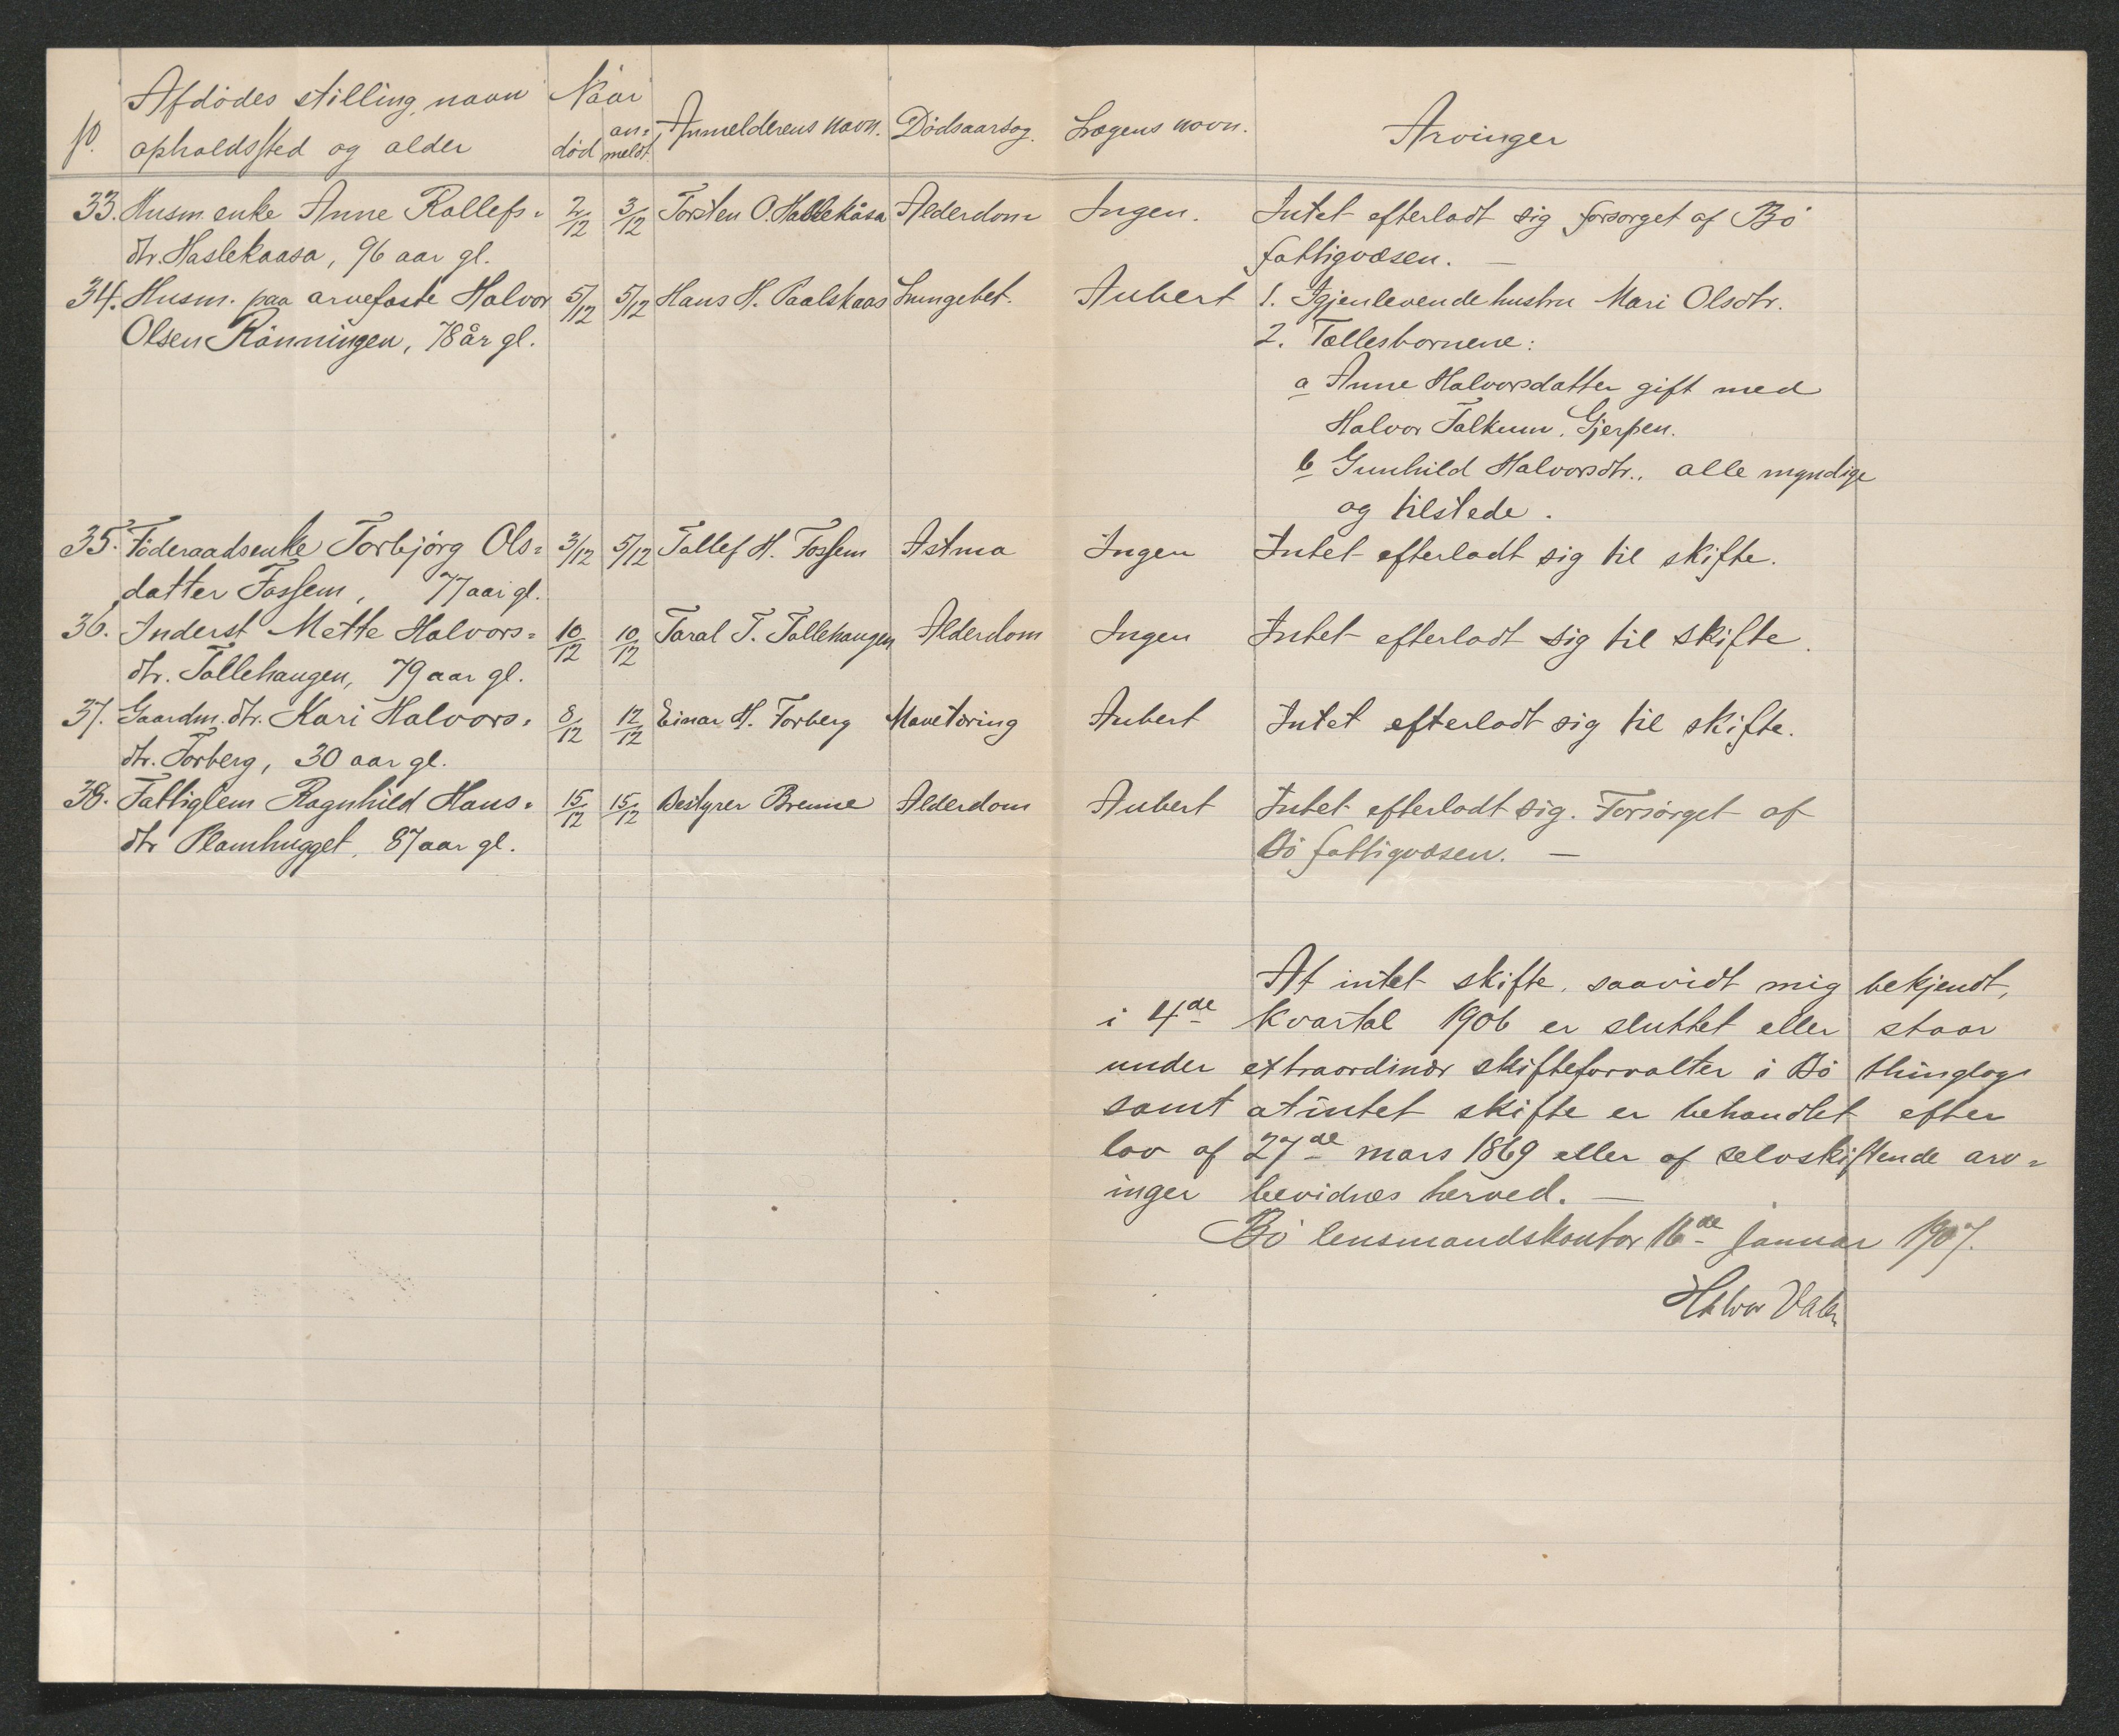 №. Afdödes stilling, navn opholdssted og alder Naar död anmeldt Anmelderens navn. Dödsaarsag. Lægens navn. Arvinger
33. Husm. enke Anne Rollefs= 2/12 3/12 Torsten O. Haslekåsa Alderdom Ingen. Intet efterladt sig forsörget af Bö
dtr. Haslekaasa, 96 aar gl. fattigvæsen. —
34. Husm. paa arvefæste Halvor 5/12 5/12 Hans H. Paalskaas Lungebet. Aubert 1. Igjenlevende hustru Mari Olsdtr.
Olsen Rönningen, 78 år gl. 2. Fællesbörnene:
a Anne Halvorsdatter gift med
Halvor Falkum, Gjerpen.
b Gunhild Halvorsdtr., alle myndige
og tilstede.
35. Föderaadsenke Torbjörg Ols= 3/12 5/12 Tollef H. Fossem Astma Ingen Intet efterladt sig til skifte.
datter Fossem, 77 aar gl.
36. Inderst Mette Halvors= 10/12 10/12 Taral T. Tollehaugen Alderdom Ingen Intet efterladt sig til skifte.
dtr. Tollehaugen, 79 aar gl.
37. Gaardm. dtr. Kari Halvors= 8/12 12/12 Einar H. Forberg Mavetæring Aubert Intet efterladt sig til skifte.
dtr. Forberg, 30 aar gl.
38. Fattiglem Ragnhild Hans= 15/12 15/12 Bestyrer Brenne Alderdom Aubert Intet efterladt sig. Forsörget af
dtr Plamhugget, 87 aar gl. Bö fattigvæsen. —
At intet skifte, saavidt mig bekjendt,
i 4de kvartal 1906 er sluttet eller staar
under extraordinær skifteforvalter i Bö thinglag
samt at intet skifte er behandlet efter
lov af 27de mars 1869 eller af selvskiftende arv=
inger bevidnes herved. —
Bö lensmandskontor 16de januar 1907.
Halvor Valen